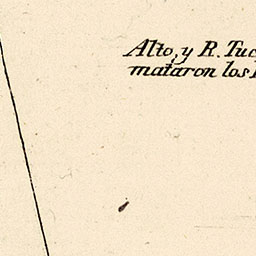 Alto, y R. Tuc
mataron los